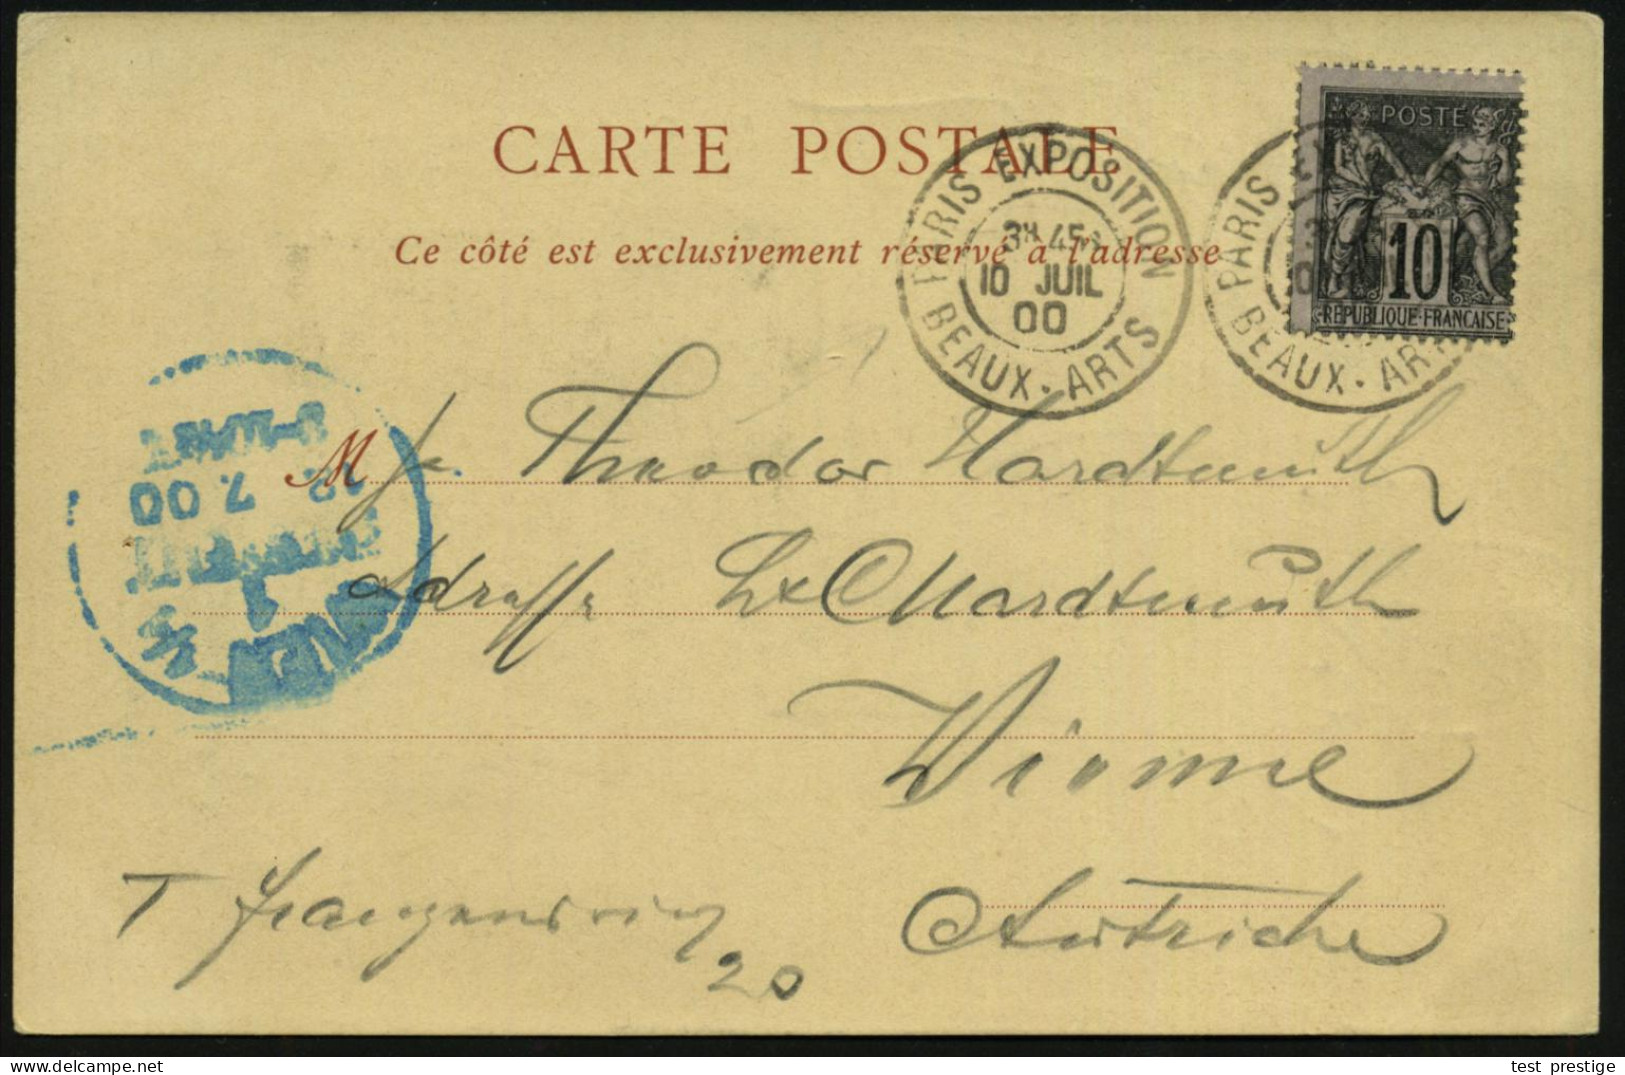 CARTE POSTALE
Ce côté est exclusivement réservé a l'adresse
PARIS EXPOSITION
3H 45
10 JUIL
00
BEAUX-ARTS
PARIS E
BEAUX-AR
POSTE
10
REPUBLIQUE FRANCAISE
WIEN
12. 7. 00
M Theodor Hardtmuth
Adresse L&C Hardtmuth
Vienne
Autriche
I
20
test_prestige